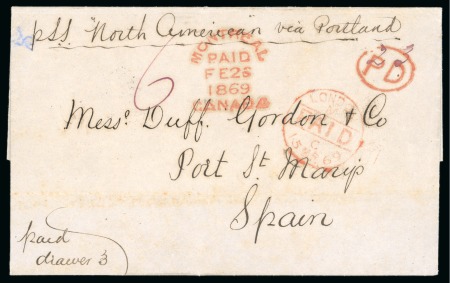 pSS "North American" via Portland
MONTREAL
PAID
FE 25
1869
CANADA
6
PD
LONDON
PAID
Messrs. Duff. Gordon & Co
Port St. Marys
Spain
paid
drawer 3